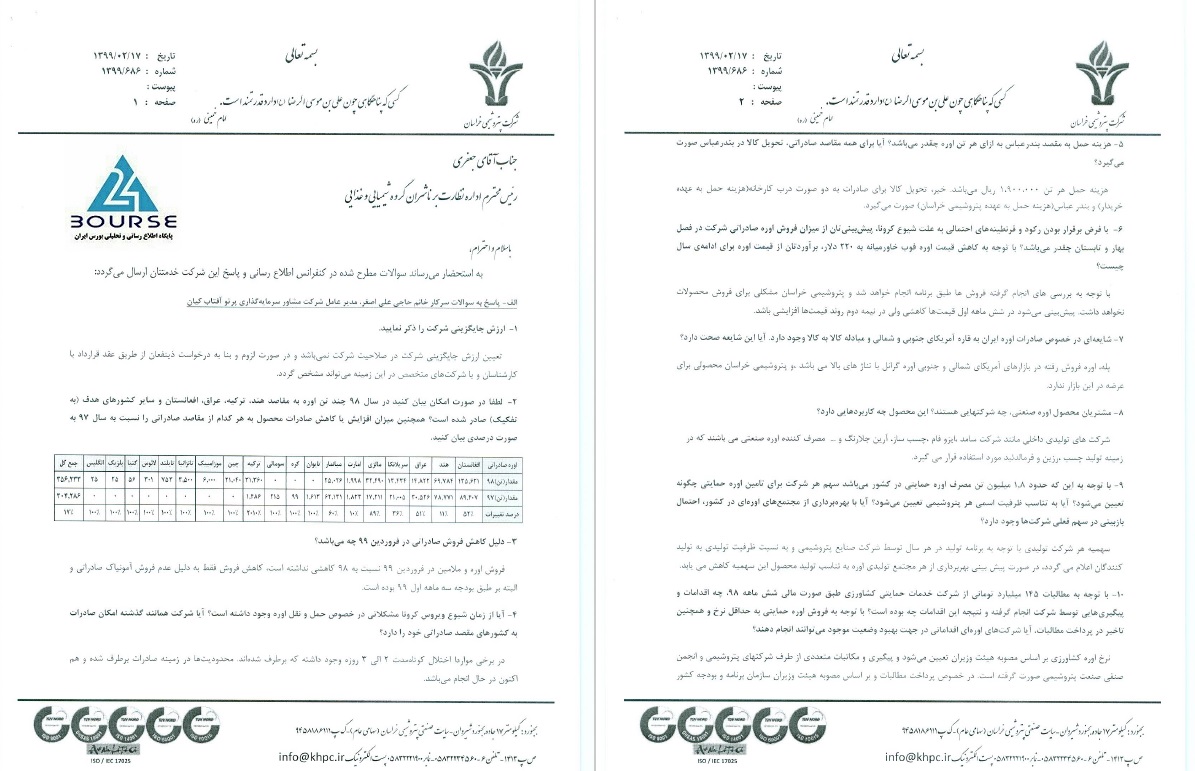 بسمه تعالی
تاریخ : ۱۳۹۹/۰۲/۱۷
شماره : ۱۳۹۹/۶۸۶
پیوست :
صفحه : ۱
کسی که پناهگاهی چون علی بن موسی الرضا (ع) دارد قدرتمند است.
امام خمینی (ره)
شرکت پتروشیمی خراسان
جناب آقای جعفری
رئیس محترم اداره نظارت بر ناشران گروه شیمیایی و غذایی
24
BOURSE
پایگاه اطلاع رسانی و تحلیلی بورس ایران
با سلام و احترام،
به استحضار می‌رساند سوالات مطرح شده در کنفرانس اطلاع رسانی و پاسخ این شرکت خدمتتان ارسال می‌گردد:
الف- پاسخ به سوالات سرکار خانم حاجی علی اصغر، مدیر عامل شرکت مشاور سرمایه‌گذاری پرتو آفتاب کیان
۱- ارزش جایگزینی شرکت را ذکر نمایید.
تعیین ارزش جایگزینی شرکت در صلاحیت شرکت نمی‌باشد و در صورت لزوم و بنا به درخواست ذینفعان از طریق عقد قرارداد با
کارشناسان و یا شرکت‌های متخصص در این زمینه می‌تواند مشخص گردد.
۲- لطفا در صورت امکان بیان کنید در سال ۹۸ چند تن اوره به مقاصد هند، ترکیه، عراق، افغانستان و سایر کشورهای هدف (به
تفکیک) صادر شده است؟ همچنین میزان افزایش یا کاهش صادرات محصول به هر کدام از مقاصد صادراتی را نسبت به سال ۹۷ به
صورت درصدی بیان کنید.
اوره صادراتی افغانستان هند عراق سریلانکا مالزی امارت میانمار تایوان کره سومالی ترکیه چین موزامبیک تانزانیا تایلند لائوس کندا بلژیک انگلیس جمع کل
مقدار(تن)۹۸ ۱۳۵,۶۳۱ ۶۹,۷۸۴
مقدار(تن)۹۷ ۸۹,۲۰۷ ۷۸,۷۷۱ ۳۰,۵۲۶ ۲۱,۰۰۵
درصد تغییرات ۵۲٪ ۱۱٪ ۵۱٪ ۳۶٪ ۸۹٪ ۱۰٪ ۶۰٪ ۱۰۰٪ ۱۰۰٪ ۱۰۰٪ ۲۰۱۰٪ ۱۰۰٪ ۱۰۰٪ ۱۰۰٪ ۱۰۰٪ ۱۰۰٪ ۱۰۰٪ ۱۰۰٪ ۱۰۰٪ ۱۷٪
۳- دلیل کاهش فروش صادراتی در فروردین ۹۹ چه می‌باشد؟
فروش اوره و ملامین در فروردین ۹۹ نسبت به ۹۸ کاهشی نداشته است، کاهش فروش فقط به دلیل عدم فروش آمونیاک صادراتی و
البته بر طبق بودجه سه ماهه اول ۹۹ بوده است.
۴- آیا از زمان شیوع ویروس کرونا مشکلاتی در خصوص حمل و نقل اوره وجود داشته است؟ آیا شرکت همانند گذشته امکان صادرات
به کشورهای مقصد صادراتی خود را دارد؟
در برخی موارد اختلال کوتاه‌مدت ۲ الی ۳ روزه وجود داشته که برطرف شده‌اند. محدودیت‌ها در زمینه صادرات برطرف شده و هم
اکنون در حال انجام می‌باشد.
TUV NORD TUV NORD TUV NORD TUV NORD TUV NORD
ISO / IEC 17025
info@khpc.ir
بسمه تعالی
تاریخ : ۱۳۹۹/۰۲/۱۷
شماره : ۱۳۹۹/۶۸۶
پیوست :
صفحه : ۲
کسی که پناهگاهی چون علی بن موسی الرضا (ع) دارد قدرتمند است.
امام خمینی (ره)
شرکت پتروشیمی خراسان
۵- هزینه حمل به مقصد بندرعباس به ازای هر تن اوره چقدر می‌باشد؟ آیا برای همه مقاصد صادراتی، تحویل کالا در بندرعباس صورت
می‌گیرد؟
هزینه حمل هر تن ۱,۹۰۰,۰۰۰ ریال می‌باشد. خیر، تحویل کالا برای صادرات به دو صورت درب کارخانه(هزینه حمل به عهده
خریدار) و بندر عباس(هزینه حمل به عهده پتروشیمی خراسان) صورت می‌گیرد.
۶- با فرض برقرار بودن رکود و قرنطینه‌های احتمالی به علت شیوع کرونا، پیش‌بینی‌تان از میزان فروش اوره صادراتی شرکت در فصل
بهار و تابستان چقدر می‌باشد؟ با توجه به کاهش قیمت اوره فوب خاورمیانه به ۲۲۰ دلار، برآوردتان از قیمت اوره برای ادامه‌ی سال
چیست؟
با توجه به بررسی های انجام گرفته فروش ها طبق برنامه انجام خواهد شد و پتروشیمی خراسان مشکلی برای فروش محصولات
نخواهد داشت. پیش‌بینی می‌شود در شش ماهه اول قیمت‌ها کاهشی ولی در نیمه دوم روند قیمت‌ها افزایشی باشد.
۷- شایعه‌ای در خصوص صادرات اوره ایران به قاره آمریکای جنوبی و شمالی و مبادله کالا به کالا وجود دارد. آیا این شایعه صحت دارد؟
بله، اوره فروش رفته در بازارهای آمریکای شمالی و جنوبی اوره گرانل با تناژ های بالا می باشد .و پتروشیمی خراسان محصولی برای
عرضه در این بازار ندارد.
۸- مشتریان محصول اوره صنعتی، چه شرکتهایی هستند؟ این محصول چه کاربردهایی دارد؟
شرکت های تولیدی داخلی مانند شرکت سامد ،ایزو فام ،چسب ساز، آرین جلارنگ و ... مصرف کننده اوره صنعتی می باشند که در
زمینه تولید چسب ،رزین و فرمالدئید مورد استفاده قرار می گیرد.
۹- با توجه به این که حدود ۱.۸ میلیون تن مصرف اوره حمایتی در کشور می‌باشد سهم هر شرکت برای تامین اوره حمایتی چگونه
تعیین می‌شود؟ آیا به تناسب ظرفیت اسمی هر پتروشیمی تعیین می‌شود؟ آیا با بهره‌برداری از مجتمع‌های اوره‌ای در کشور، احتمال
بازبینی در سهم قعلی شرکت‌ها وجود دارد؟
سهمیه هر شرکت تولیدی با توجه به برنامه تولید در هر سال توسط شرکت صنایع پتروشیمی و به نسبت ظرفیت تولیدی به تولید
کنندگان اعلام می گردد، در صورت پیش بینی بهره‌برداری از هر مجتمع تولیدی اوره به تناسب تولید محصول این سهمیه کاهش می یابد.
۱۰- با توجه به مطالبات ۱۴۵ میلیارد تومانی از شرکت خدمات حمایتی کشاورزی طبق صورت مالی شش ماهه ۹۸، چه اقدامات و
پیگیری‌هایی توسط شرکت انجام گرفته و نتیجه این اقدامات چه بوده است؟ با توجه به فروش اوره حمایتی به حداقل نرخ و همچنین
تاخیر در پرداخت مطالبات، آیا شرکت‌های اوره‌ای اقداماتی در جهت بهبود وضعیت موجود می‌توانند انجام دهند؟
نرخ اوره کشاورزی بر اساس مصوبه هیئت وزیران تعیین می‌شود و پیگیری و مکاتبات متعددی از طرف شرکتهای پتروشیمی و انجمن
صنفی صنعت پتروشیمی صورت گرفته است. در خصوص پرداخت مطالبات و بر اساس مصوبه هیئت وزیران سازمان برنامه و بودجه کشور
TUV NORD TUV NORD TUV NORD TUV NORD TUV NORD
ISO / IEC 17025
info@khpc.ir